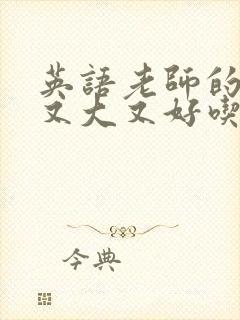 英語老師的
又大又好喫
今典